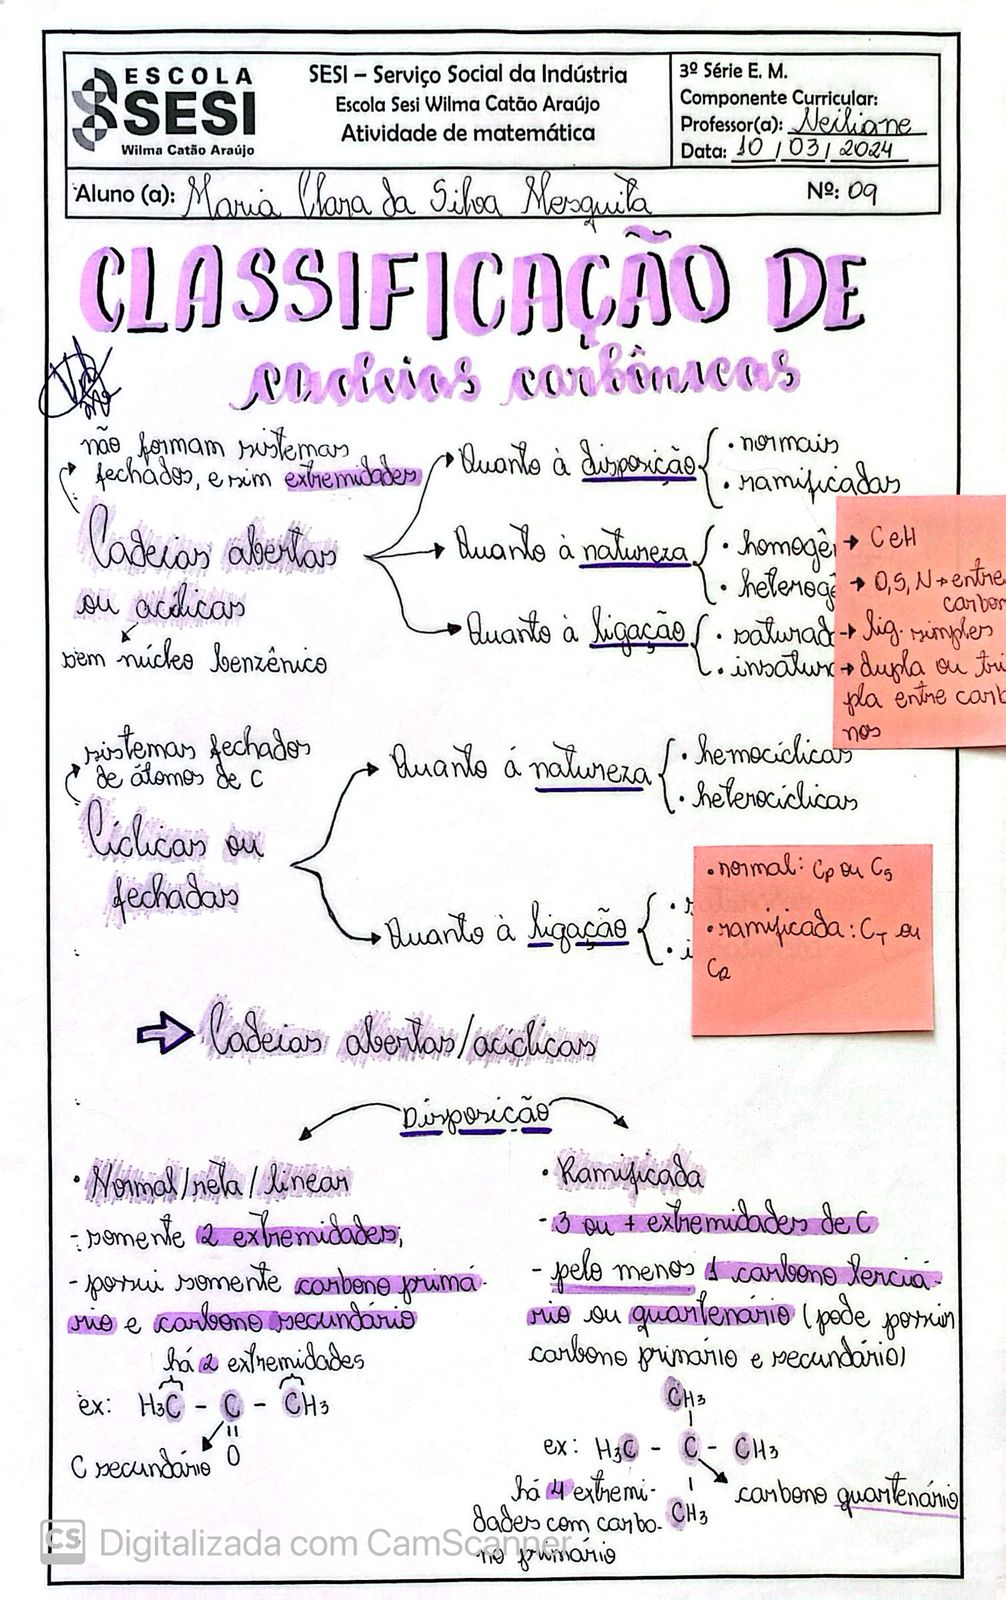 ESCOLA
SESI
Wilma Catão Araújo
SESI – Serviço Social da Indústria
Escola Sesi Wilma Catão Araújo
Atividade de matemática
3º Série E. M.
Componente Curricular:
Professor(a): Neiliane
Data: 10 / 03 / 2024
Aluno (a): Maria Clara da Silva Mesquita
Nº: 09
CLASSIFICAÇÃO DE
cadeias carbônicas
não formam sistemas
fechados, e sim extremidades
Cadeias abertas
ou acíclicas
sem núcleo benzênico
Quanto à disposição
• normais
• ramificadas
Quanto à natureza
• homogê
• heterog
Quanto à ligação
• saturad
• insatur
→ C e H
→ O, S, N → entre
carbon
→ lig. simples
→ dupla ou tri
pla entre carb
nos
sistemas fechados
de átomos de C
Cíclicas ou
fechadas
Quanto á natureza
• homocíclicas
• heterocíclicas
Quanto à ligação
• normal: CP ou CS
• ramificada: CT ou
CQ
Cadeias abertas/acíclicas
Disposição
• Normal/reta/linear
- somente 2 extremidades;
- possui somente carbono primá-
rio e carbono secundário
há 2 extremidades
ex: H3C - C - CH3
O
C secundário
• Ramificada
- 3 ou + extremidades de C
- pelo menos 1 carbono terciá-
rio ou quartenário (pode possuir
carbono primário e secundário)
CH3
ex: H3C - C - CH3
CH3
carbono quartenário
há 4 extremi-
dades com carbo-
no primário
CS Digitalizada com CamScanner